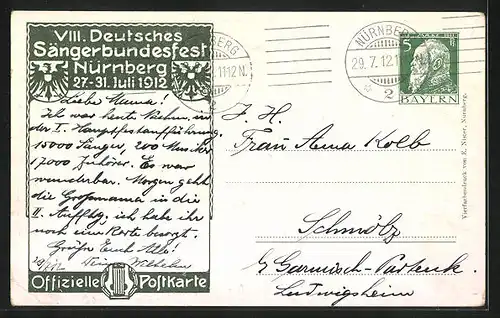 VIII. Deutsches
Sängerbundesfest
Nürnberg
27.-31. Juli 1912
Liebe Mama!
Ich war heute Nachm. in
der I. Hauptfestaufführung.
15000 Sänger, 200 Musiker
17000 Zuhörer. Es war
wunderbar. Morgen geht
die Grossmama in die
II. Auffhg. ich habe ihr
noch eine Karte besorgt.
Grüsse Euch Alle!
Wilhelm
Offizielle Postkarte
NÜRNBERG
NÜRNBERG
29.7.12.11
2
5
BAYERN
Frau Anna Kolb
Schmölz
b/ Garmisch-Partenk.
Ludwigsheim
Vierfarbendruck von E. Nister, Nürnberg.